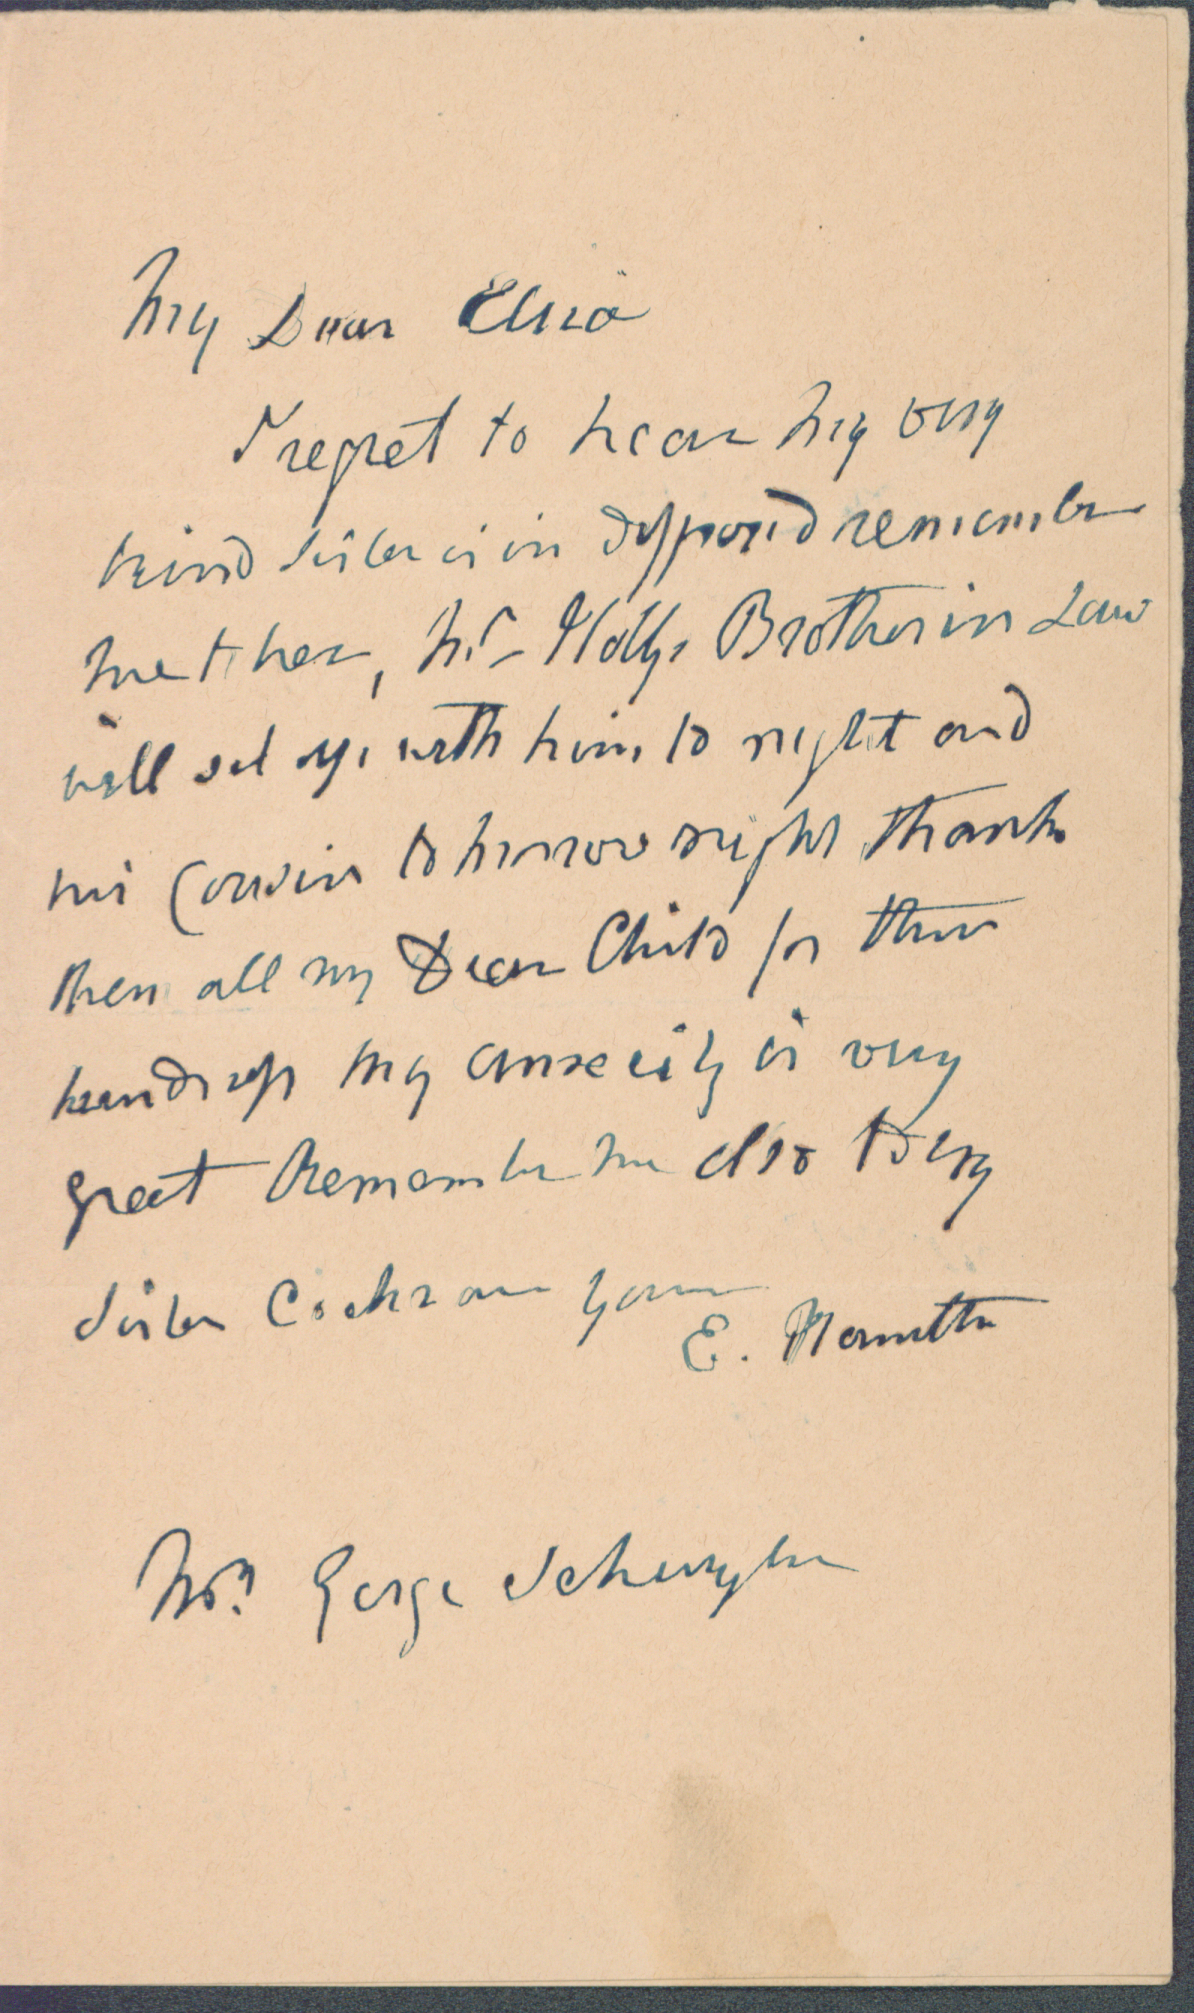 My Dear Eliza
I regret to hear my very
kind sister is in disposed remember
me to her, Mr Hollys Brother in Law
will set up with him to night and
his Cousin to morrow night thank
them all my Dear Child for their
kindness my anxeity is very
great Remember me also to my
sister Cochran yours
E. Hamilton
Mrs George Schuyler